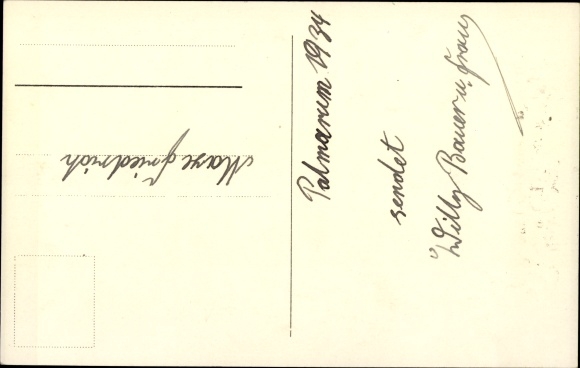 Palmarum 1934
sendet
Willy Bauer u. frau
Max Friedrich